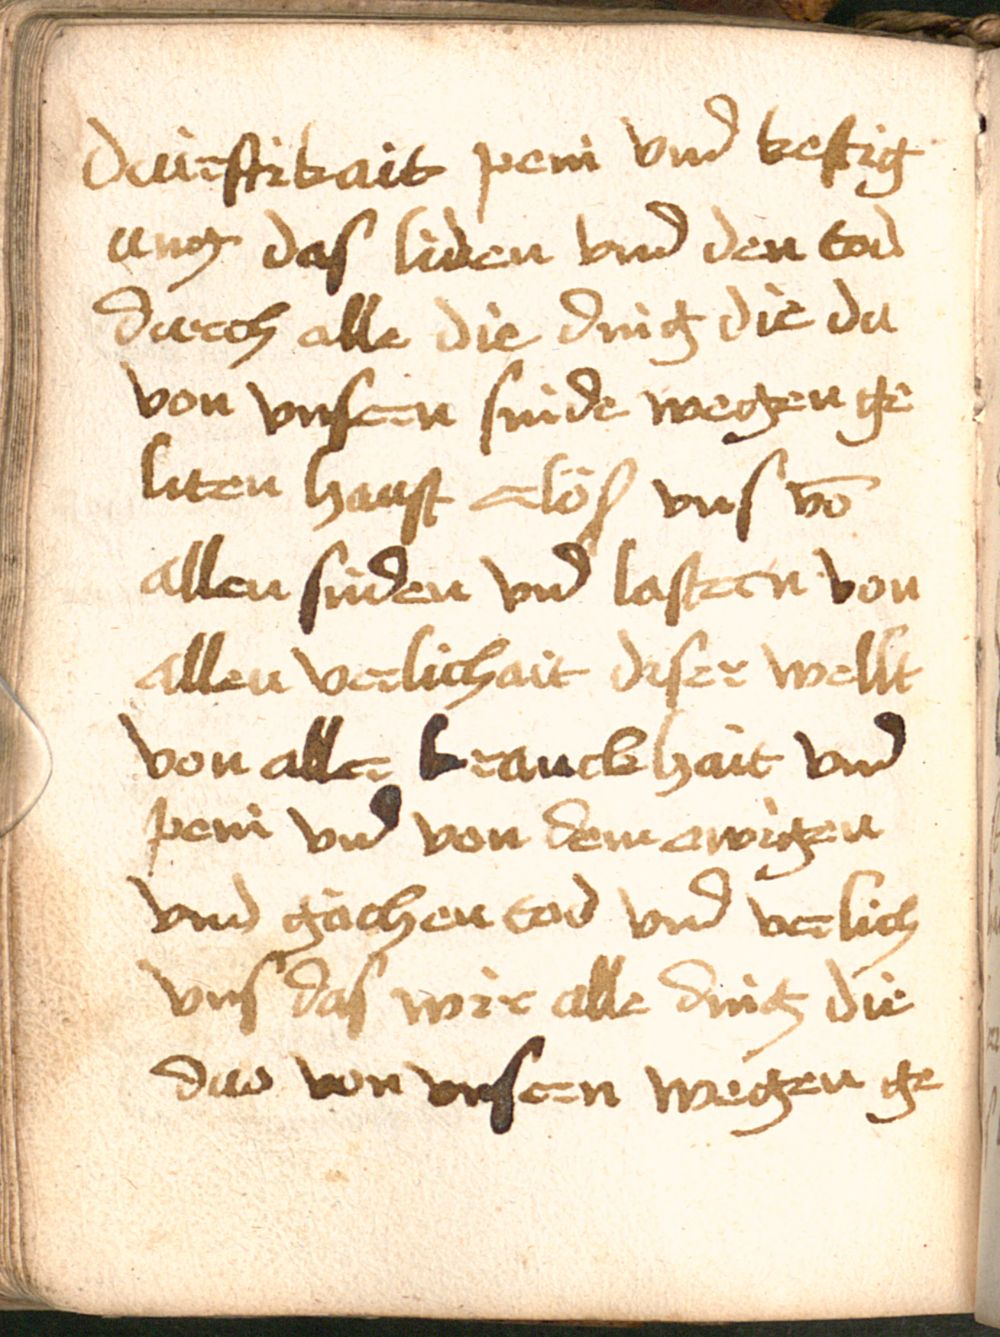 durstikait pein vnd kestig
ung das liden vnd den tod
durch alle die ding die du
von vnsern sünde wegen ge
liten haust erlös vns võ
allen sünden vnd lastern von
allen verlichait deser wellt
von aller kranckhait vnd
pein vnd von dem ewigen
vnd gächen tod vnd verlich
vns das wir alle ding die
duo von vnsern wegen ge